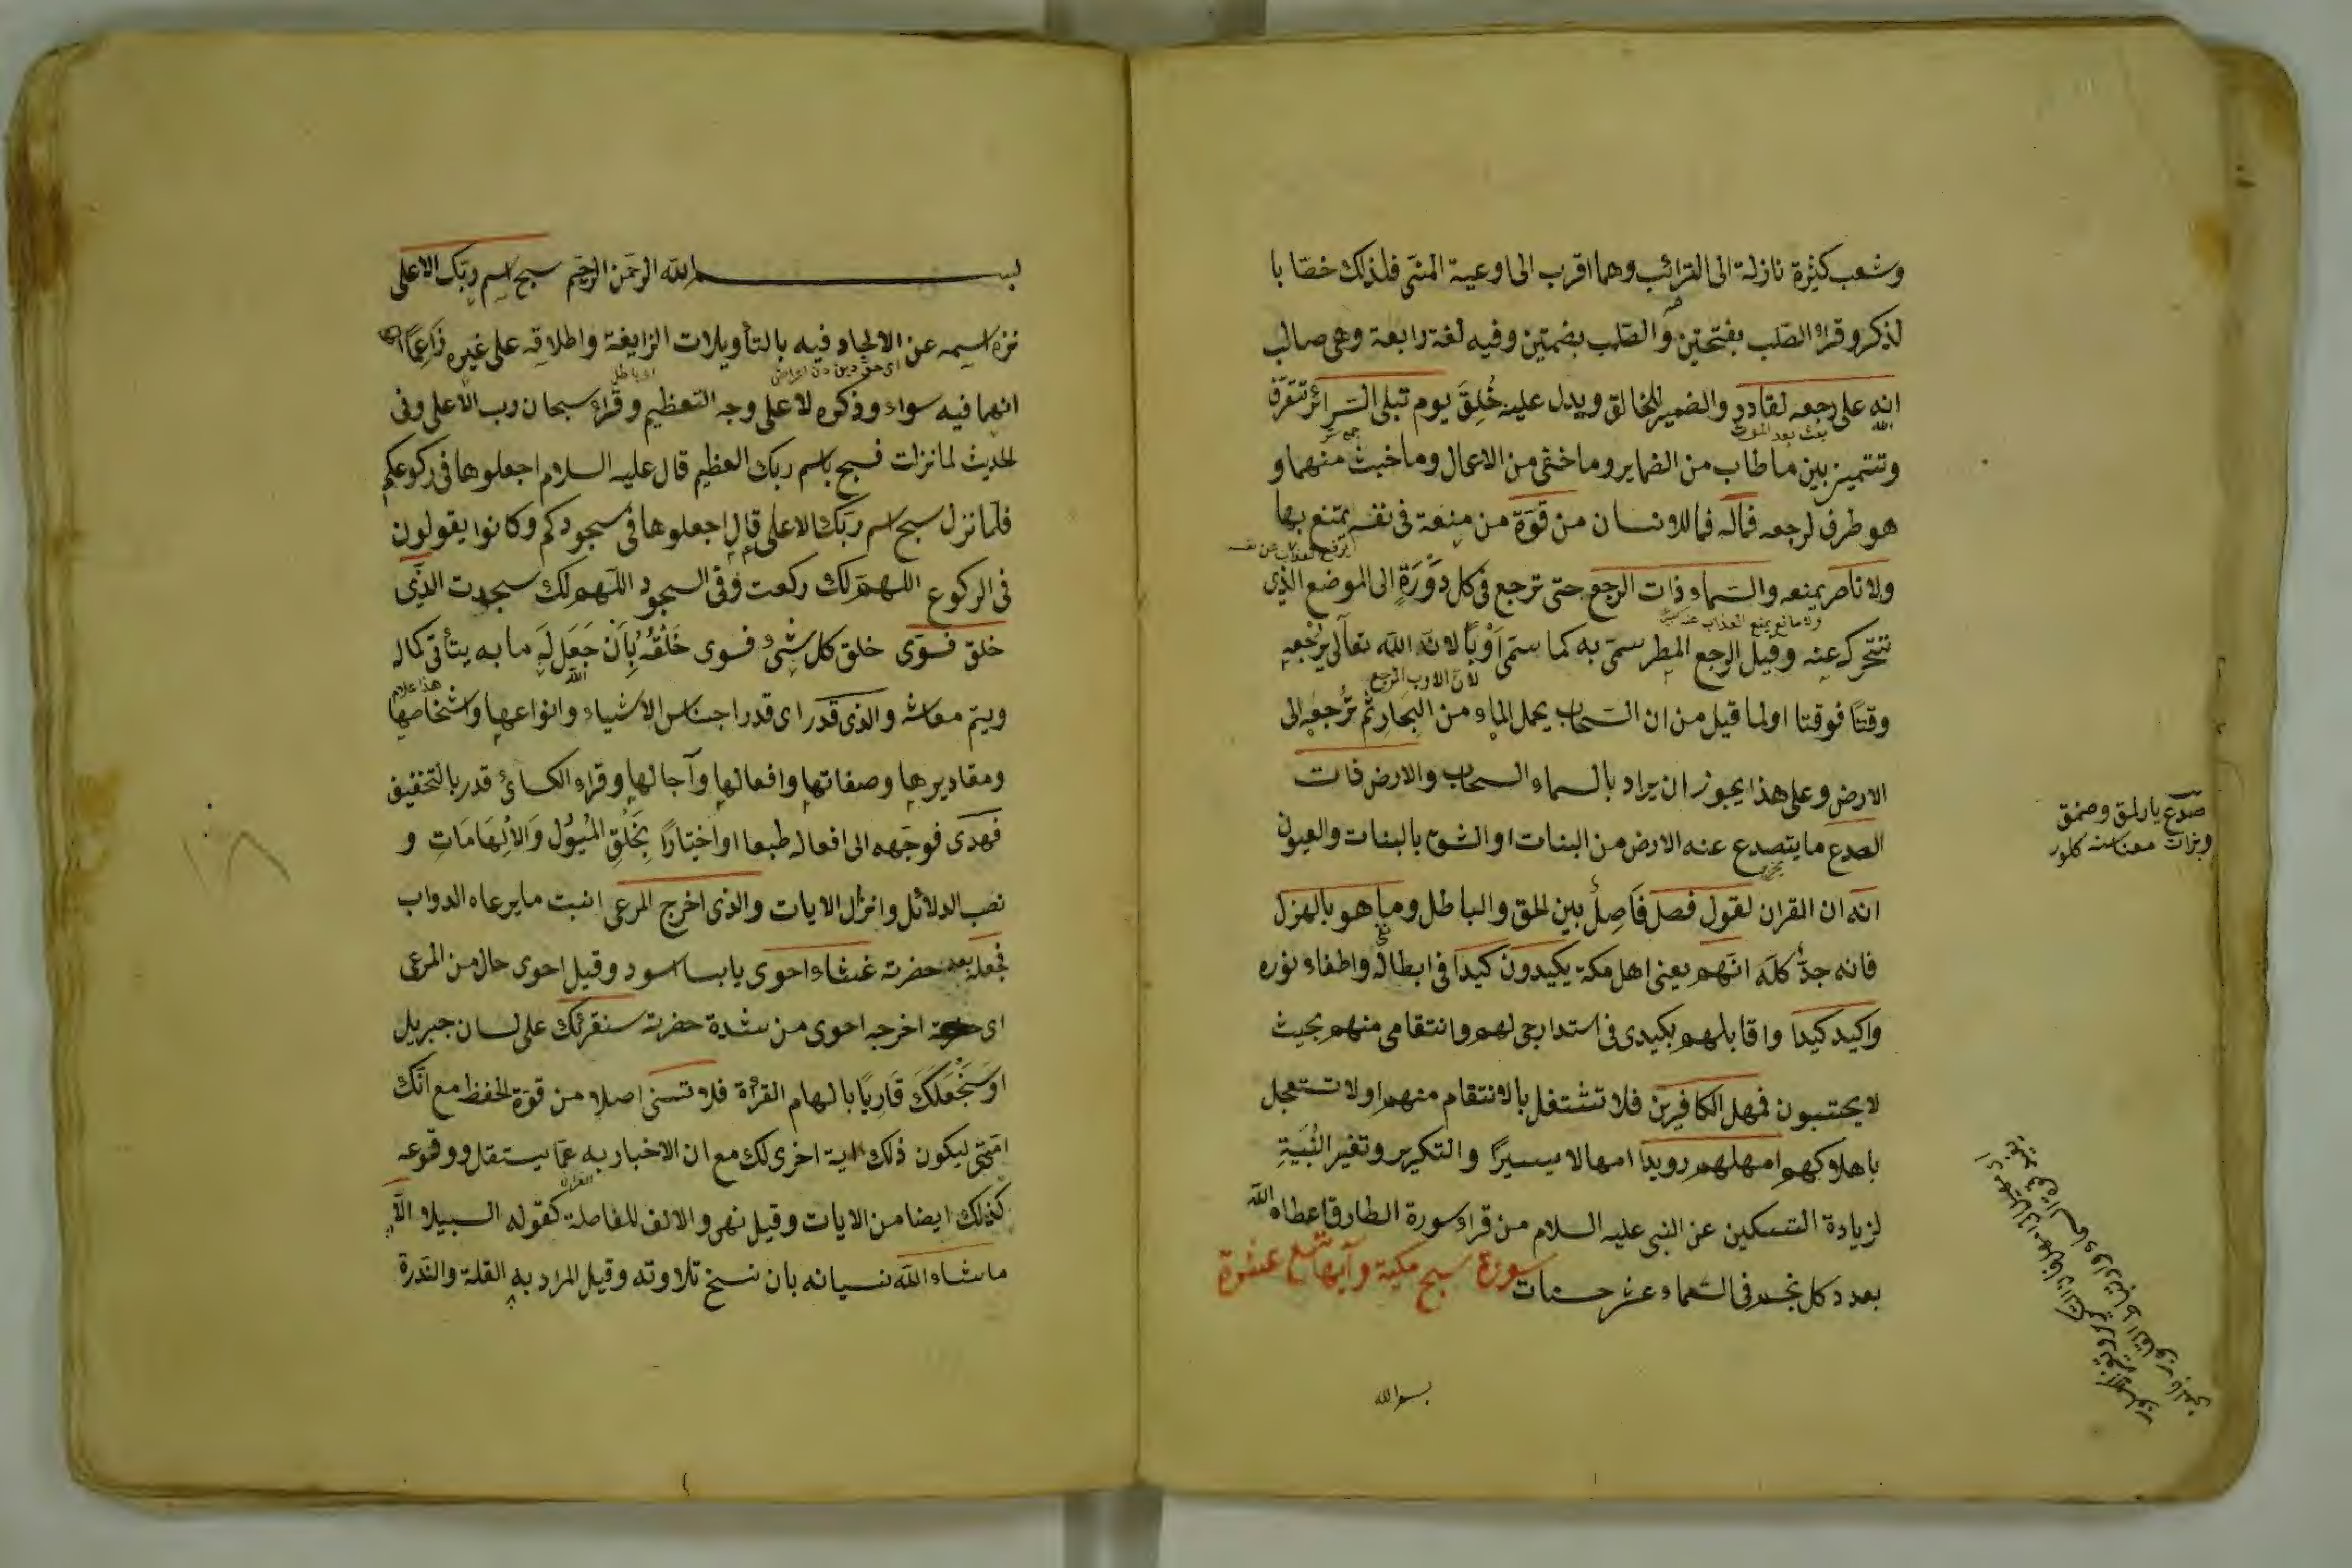 وشعب كثيرة نازلة الى الترائب وهما اقرب الى اوعية المنى فلذلك خصا با
لذكر وقرئ الصلب بفتحتين والصلب بضمتين وفيه لغة رابعة وهى صالب
انه على رجعه لقادر والضمير للخالق ويدل عليه خُلِقَ يوم تبلى السرائر تتعرف
الله
بعث بعد الموت
وتتميز بين ما طاب من الضماير وما خفى من الاعمال وما خبث منهما و
هو ظرف لرجعه فماله فما للانسان من قوة من منعة فى نفسه يمتنع بها
ولا ناصر يمنعه والسماء ذات الرجع حتى ترجع فى كل دَوْرَةٍ الى الموضع الذى
ولا مانع يمنع العذاب عنه
تتحرك عنه وقيل الرجع المطر سمى به كما سمى اَوْباً لان الله تعالى يرجعه
لان الاوب الرجع
وقتًا فوقتا او لما قيل من ان السحاب يحمل الماء من البحار ثم ترجعه الى
الارض وعلى هذا يجوز ان يراد بالسماء السحاب والارض ذات
الصدع ما يتصدع عنه الارض من النبات او الشق بالنبات والعيون
انه ان القران لقول فصل فَاصِل بين الحق والباطل وما هو بالهزل
فانه جدٌّ كله انهم يعنى اهل مكة يكيدون كيدا فى ابطاله واطفاء نوره
واكيد كيدا واقابلهم بكيدى فى استدراجى لهم وانتقامى منهم بحيث
لا يحتسبون فمهل الكافرين فلا تشتغل بالانتقام منهم او لا تستعجل
باهلاكهم امهلهم رويدا امهالا يسيرًا والتكرير وتغير البنية
لزيادة التسكين عن النبى عليه السلام من قراء سورة الطارق اعطاه الله
بعدد كل نجم فى السماء عشر حسنات سورة سبح مكية وآيها تسع عشرة
بسم الله
بسم الله الرحمن الرحيم سبح اسم ربك الاعلى
نزه اسمه عن الالحاد فيه بالتأويلات الزايغة واطلاقه على غيره زَاعِمًا
انهما فيه سواء وذكره لا على وجه التعظيم وقرئ سبحان رب الاعلى وفى
الحديث لما نزلت فسبح باسم ربك العظيم قال عليه السلام اجعلوها فى ركوعكم
فلما نزل سبح اسم ربك الاعلى قال اجعلوها فى سجودكم وكانوا يقولون
فى الركوع اللهم لك ركعت وفى السجود اللهم لك سجدت الذى
خلق فسوى خلق كل شئ فسوى خَلْقَهُ بِاَنْ جَعَلَ لَهُ ما به يتأتى كماله
الله
ويتم معاشه والذى قدر اى قدر اجناس الاشياء وانواعها واشخاصها
ومقاديرها وصفاتها وافعالها وآجالها وقراء الكسائ قدر بالتخفيف
فهدى فوجهه الى افعاله طبعا او اختيارًا بِخَلْقِ المُيُول وَالاِلْهَامَاتِ و
نصب الدلائل وانزال الايات والذى اخرج المرعى انبت ما يرعاه الدواب
فجعله بعد خضرته غثاء احوى يابسا اسود وقيل احوى حال من المرعى
اى اخرجه احوى من شدة خضرته سنقرئك على لسان جبريل
اوسَنَجْعَلُكَ قَارِيًا بالهام القرأة فلا تنسى اصلا من قوة الحفظ مع انك
امى ليكون ذلك اية اخرى لك مع ان الاخبار به عما يستقبل ووقوعه
كذلك ايضا من الايات وقيل نهى والالف للفاصلة كقوله السبيلا الا
ما شاء الله نسيانه بان نسخ تلاوته وقيل المراد به القلة والندرة